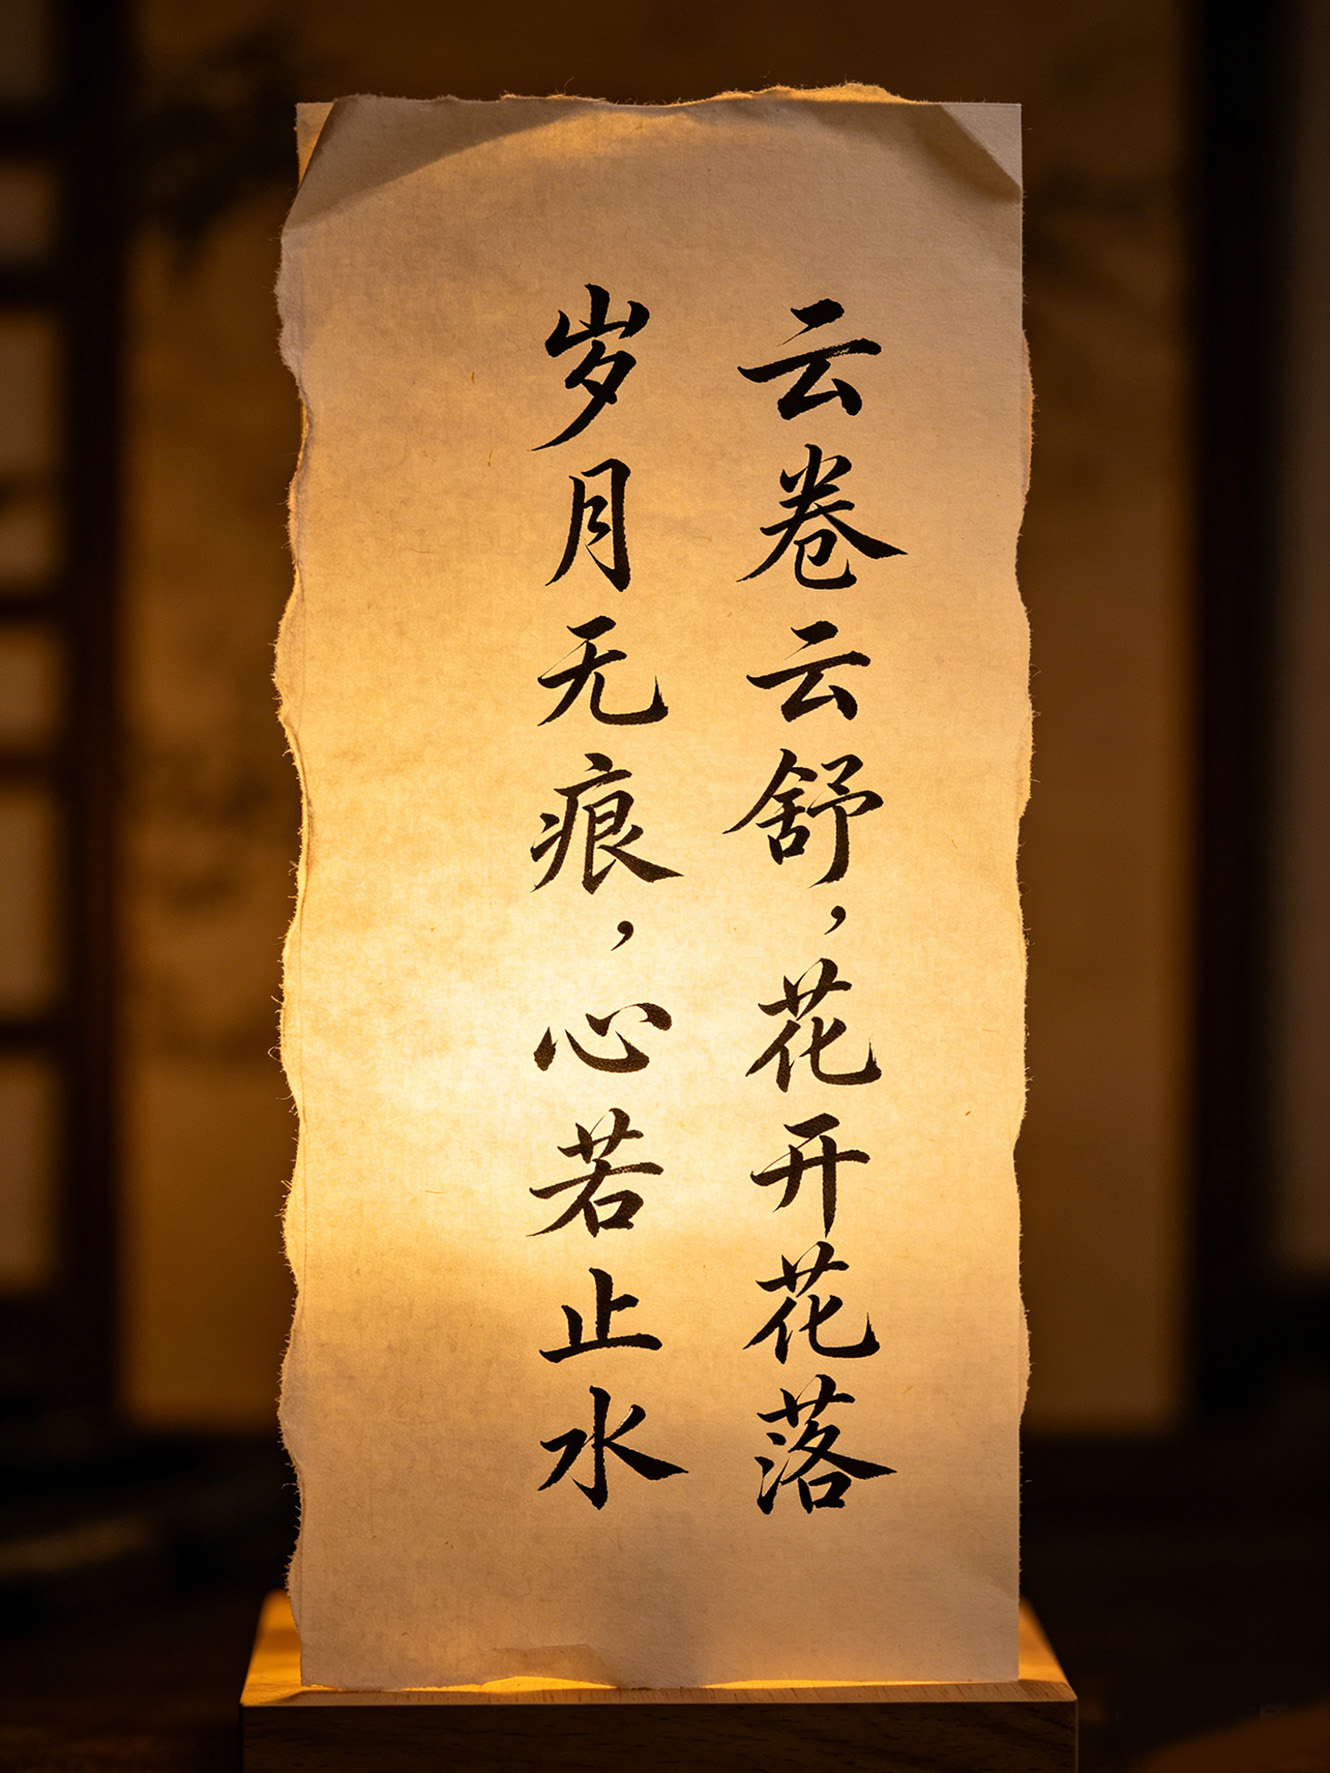 云卷云舒，花开花落
岁月无痕，心若止水